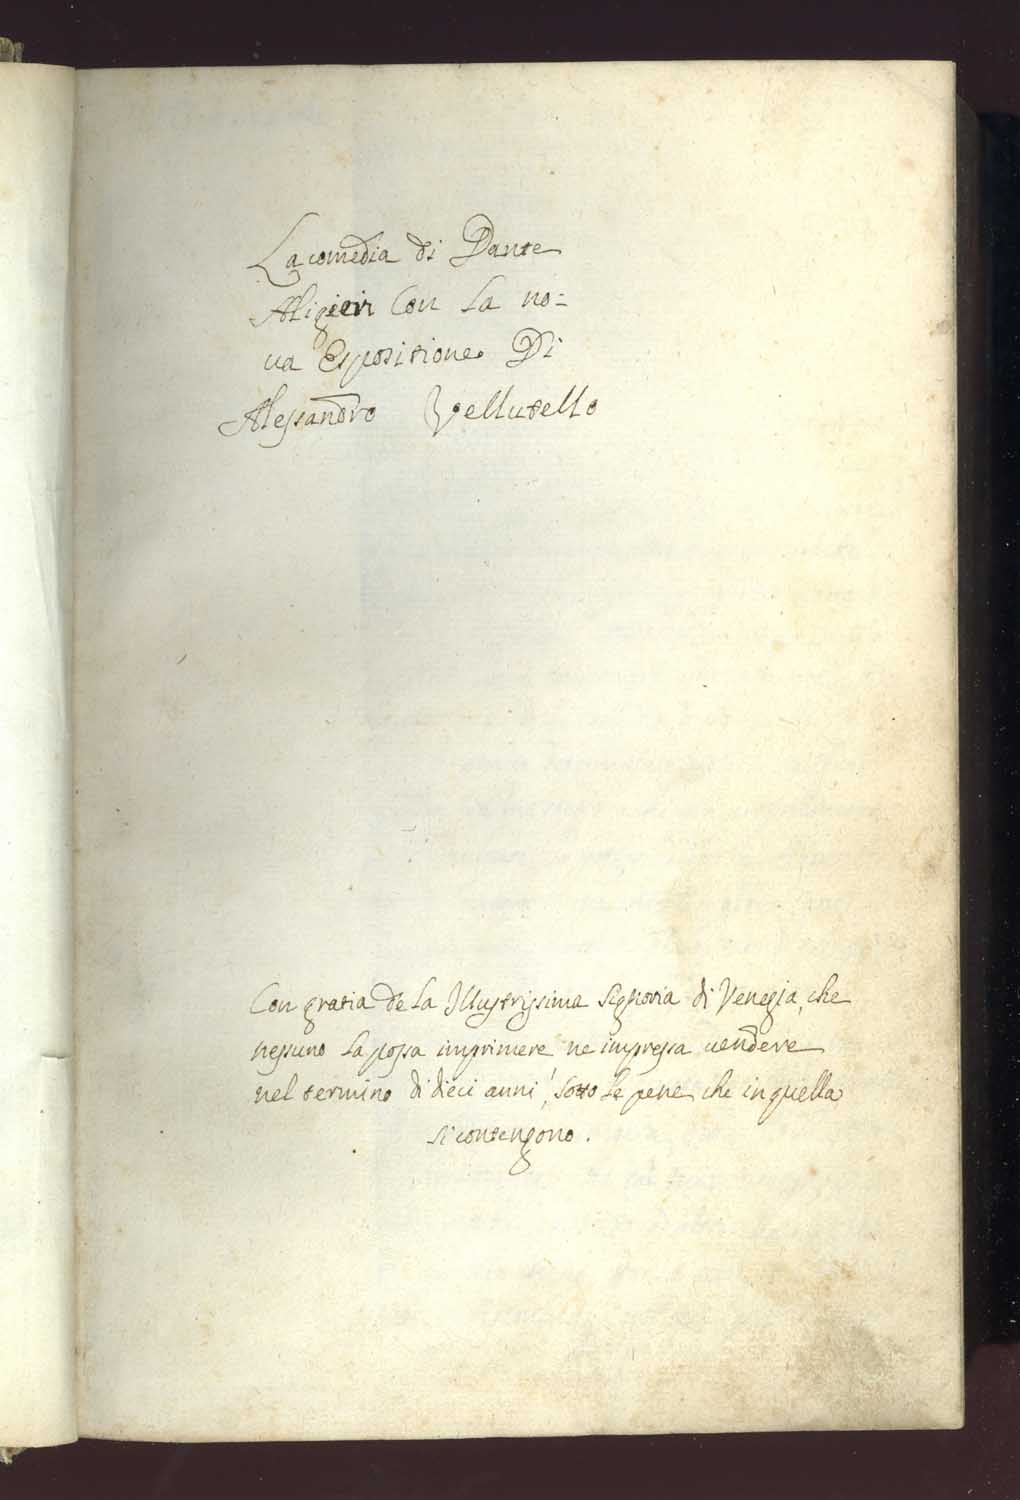 La comedia di Dante
Aligieri Con La no=
ua Espositione Di
Alessandro Vellutello
Con gratia de La Illustrissima Signoria di Venegia, che
nessuno la possa imprimere ne impressa uendere
nel termino di dieci anni, sotto le pene che in quella
si contengono.